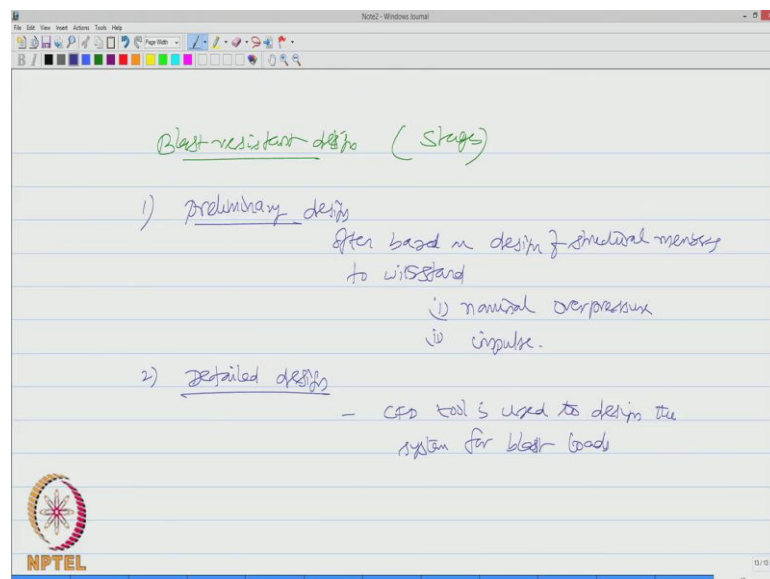 Note2 - Windows Journal
File Edit View Insert Actions Tools Help
Page Width
B I
Blast-resistant design (Stages)
1) preliminary design
often based on design of structural members
to withstand
(i) nominal overpressure
(ii) impulse.
2) Detailed design
- CFD tool is used to design the
system for blast loads
NPTEL
13/13